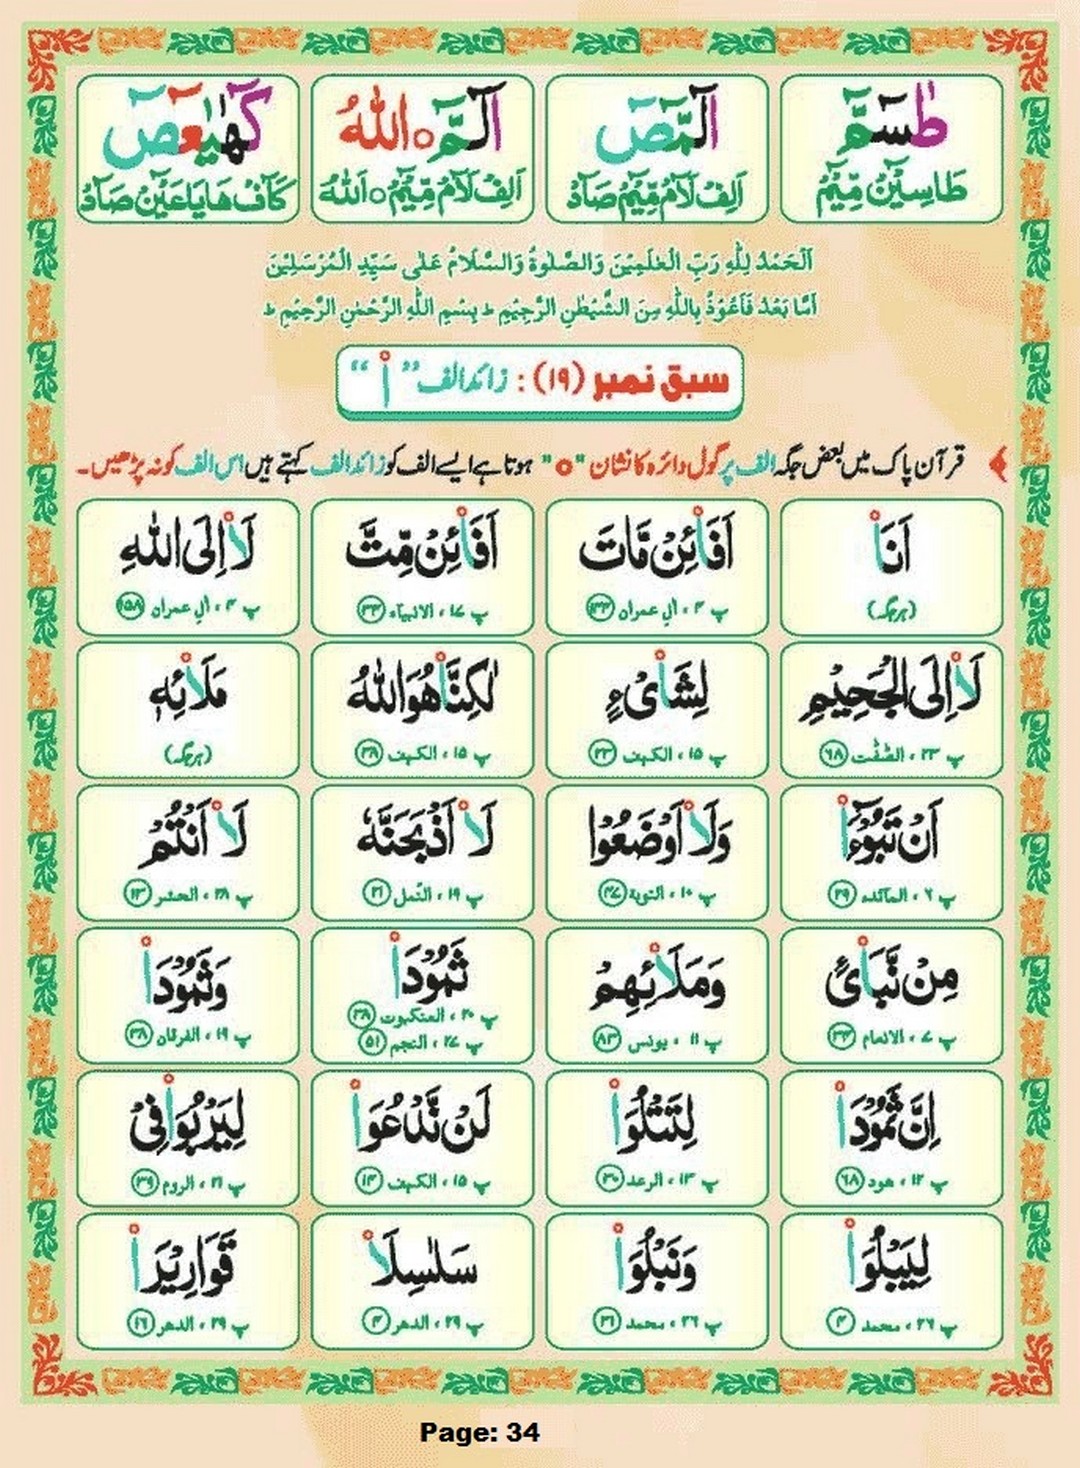 طٰسٓمّٓ
الٓمّٓصٓ
الٓمّٓ ۝ اللهُ
كٓهٰيٰعٓصٓ
طَا سِيْٓنْ مِّيْٓمْ
اَلِفْ لَآمْ مِّيْٓمْ صَآدْ
اَلِفْ لَآمْ مِّيْٓمْ ۝ اَللهُ
كَآفْ هَا يَا عَيْٓنْ صَآدْ
اَلْحَمْدُ لِلّٰهِ رَبِّ الْعٰلَمِيْنَ وَالصَّلٰوةُ وَالسَّلَامُ عَلٰى سَيِّدِ الْمُرْسَلِيْنَ
اَمَّا بَعْدُ فَاَعُوْذُ بِاللّٰهِ مِنَ الشَّيْطٰنِ الرَّجِيْمِ ط بِسْمِ اللّٰهِ الرَّحْمٰنِ الرَّحِيْمِ ط
سبق نمبر (۱۹) : زائد الف ” اْ “
قرآن پاک میں بعض جگہ الف پر گول دائرہ کا نشان "o" ہوتا ہے ایسے الف کو زائد الف کہتے ہیں اس الف کو نہ پڑھیں۔
اَنَا۟
اَفَا۟ئِنْ مَّاتَ
اَفَا۟ئِنْ مِّتَّ
لَا۟اِلَى اللهِ
(ہرجگہ)
پ ۴ ، اٰلِ عمران ۱۴۴
پ ۱۷ ، الانبیآء ۳۴
پ ۴ ، اٰلِ عمران ۱۵۸
لَا۟اِلَى الْجَحِيْمِ
لِشَا۟ىْءٍ
لٰكِنَّا۟هُوَاللهُ
مَلَا۟ئِهٖ
پ ۲۳ ، الصّٰفّٰت ۶۸
پ ۱۵ ، الکہف ۲۳
پ ۱۵ ، الکہف ۳۸
(ہرجگہ)
اَنْ تَبُوْٓءَا۟
وَلَا۟اَوْضَعُوْا
لَا۟ اَذْبَحَنَّهٗ
لَا۟ اَنْتُمْ
پ ۶ ، المآئدہ ۲۹
پ ۱۰ ، التوبة ۴۷
پ ۱۹ ، النّمل ۲۱
پ ۲۸ ، الحشر ۱۳
مِنْ نَّبَا۟ئِ
وَمَلَا۟ئِهِمْ
ثَمُوْدَا۟
وَثَمُوْدَا۟
پ ۷ ، الانعام ۳۴
پ ۱۱ ، یونس ۸۳
پ ۲۰ ، العنکبوت ۳۸
پ ۲۷ ، النجم ۵۱
پ ۱۹ ، الفرقان ۳۸
اِنَّ ثَمُوْدَا۟
لِتَتْلُوَا۟
لَنْ نَّدْعُوَا۟
لِيَرْبُوَا۟ فِىْ
پ ۱۲ ، ھود ۶۸
پ ۱۳ ، الرعد ۳۰
پ ۱۵ ، الکہف ۱۴
پ ۲۱ ، الروم ۳۹
لِيَبْلُوَا۟
وَنَبْلُوَا۟
سَلٰسِلَا۟
قَوَارِيْرَا۟
پ ۲۶ ، محمد ۴
پ ۲۶ ، محمد ۳۱
پ ۲۹ ، الدھر ۴
پ ۲۹ ، الدھر ۱۶
Page: 34